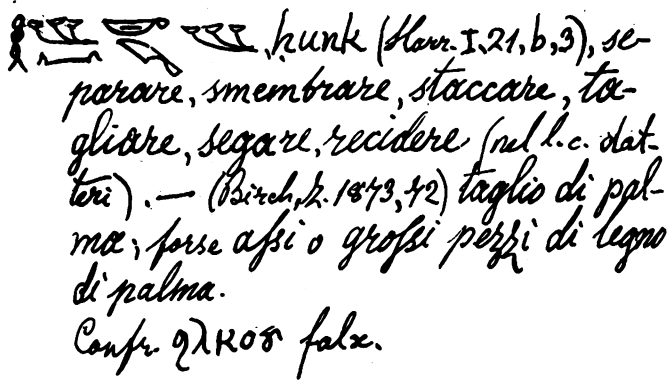 , ḥunk (Harr. I, 21, b, 3), se-
parare, smembrare, staccare, ta-
gliare, segare, recidere (nel l. c. dat-
teri). — (Birch, Z. 1873, 72) taglio di pal-
ma; forse assi o grossi pezzi di legno
di palma.
Confr. ϩⲗⲕⲟⲩ falx.